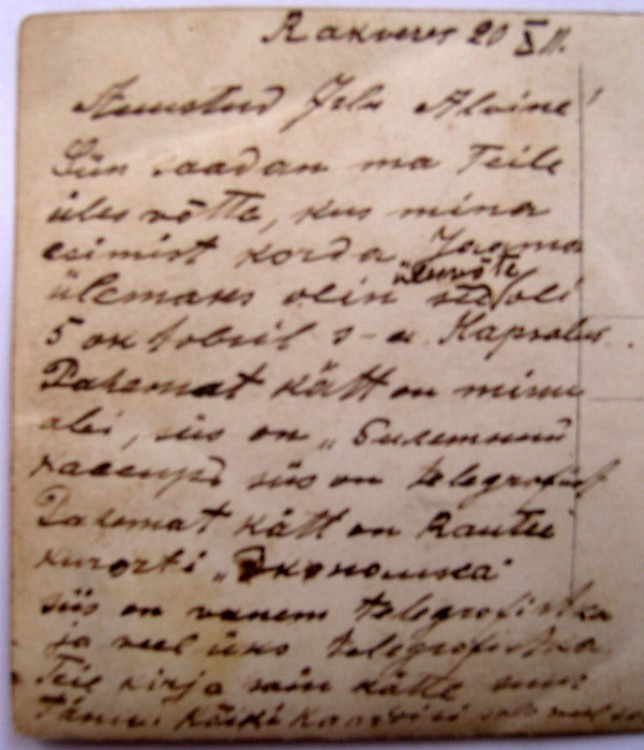 Rakveres 20 X 11.
Armstud Prln Alvine!
Siin saadan ma Teile
üles võtte, kus mina
esimist korda Jaama
ülemaks olin see oli
ülesvõte
5 oktobril s-a. Kapsalus.
Pahemat kätt on minu
abi, siis on „Билетный
кассиръ siis on telegrafist
Pahemat kätt on Rautee
kurorti „Экономка"
siis on vanem telegrafistka
ja veel üks telegrafistka
Teie kirja sain kätte suur
Tänu. Kõiki